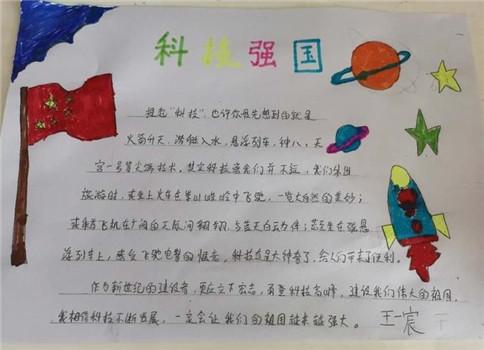 科技强国
提起“科技”,也许你最先想到的就是
火箭升天、潜艇入水、悬浮列车、神八、天
宫一号等尖端技术,其实科技离我们并不远,我们集团
旅游时,乘坐上火车在崇山峻岭中飞驰,一览大自然的美妙;
乘着飞机在广阔的天辰间翱翔,与蓝天白云为伴;若是坐在磁悬
浮列车上,感受飞驰电掣的
科技真是太神奇了,给人们带来了便利。
作为新世纪的建设者,更应立下宏志,勇登科技高峰,建设我们伟大的祖国,
我相信科技不断发展,一定会让我们的祖国越来越强大。
王一宸